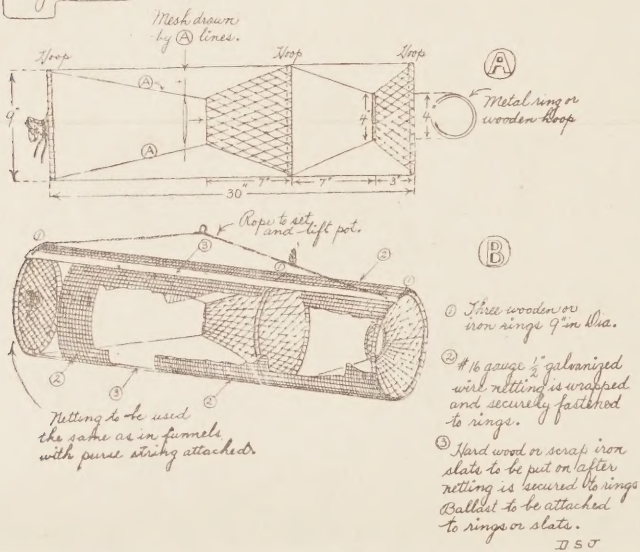 Mesh drawn
by Ⓐ lines.
Hoop
Hoop
Hoop
Ⓐ
Ⓐ
Ⓐ
9"
4"
4"
Metal ring or
wooden hoop
7"
7"
3"
30"
Rope to set
and lift pot.
Ⓑ
①
③
①
②
①
②
③
②
Netting to be used
the same as in funnels
with purse string attached.
① Three wooden or
iron rings 9" in Dia.
② #16 gauge ½" galvanized
wire netting is wrapped
and securely fastened
to rings.
③ Hard wood or scrap iron
slats to be put on after
netting is secured to rings
Ballast to be attached
to rings or slats.
D S J